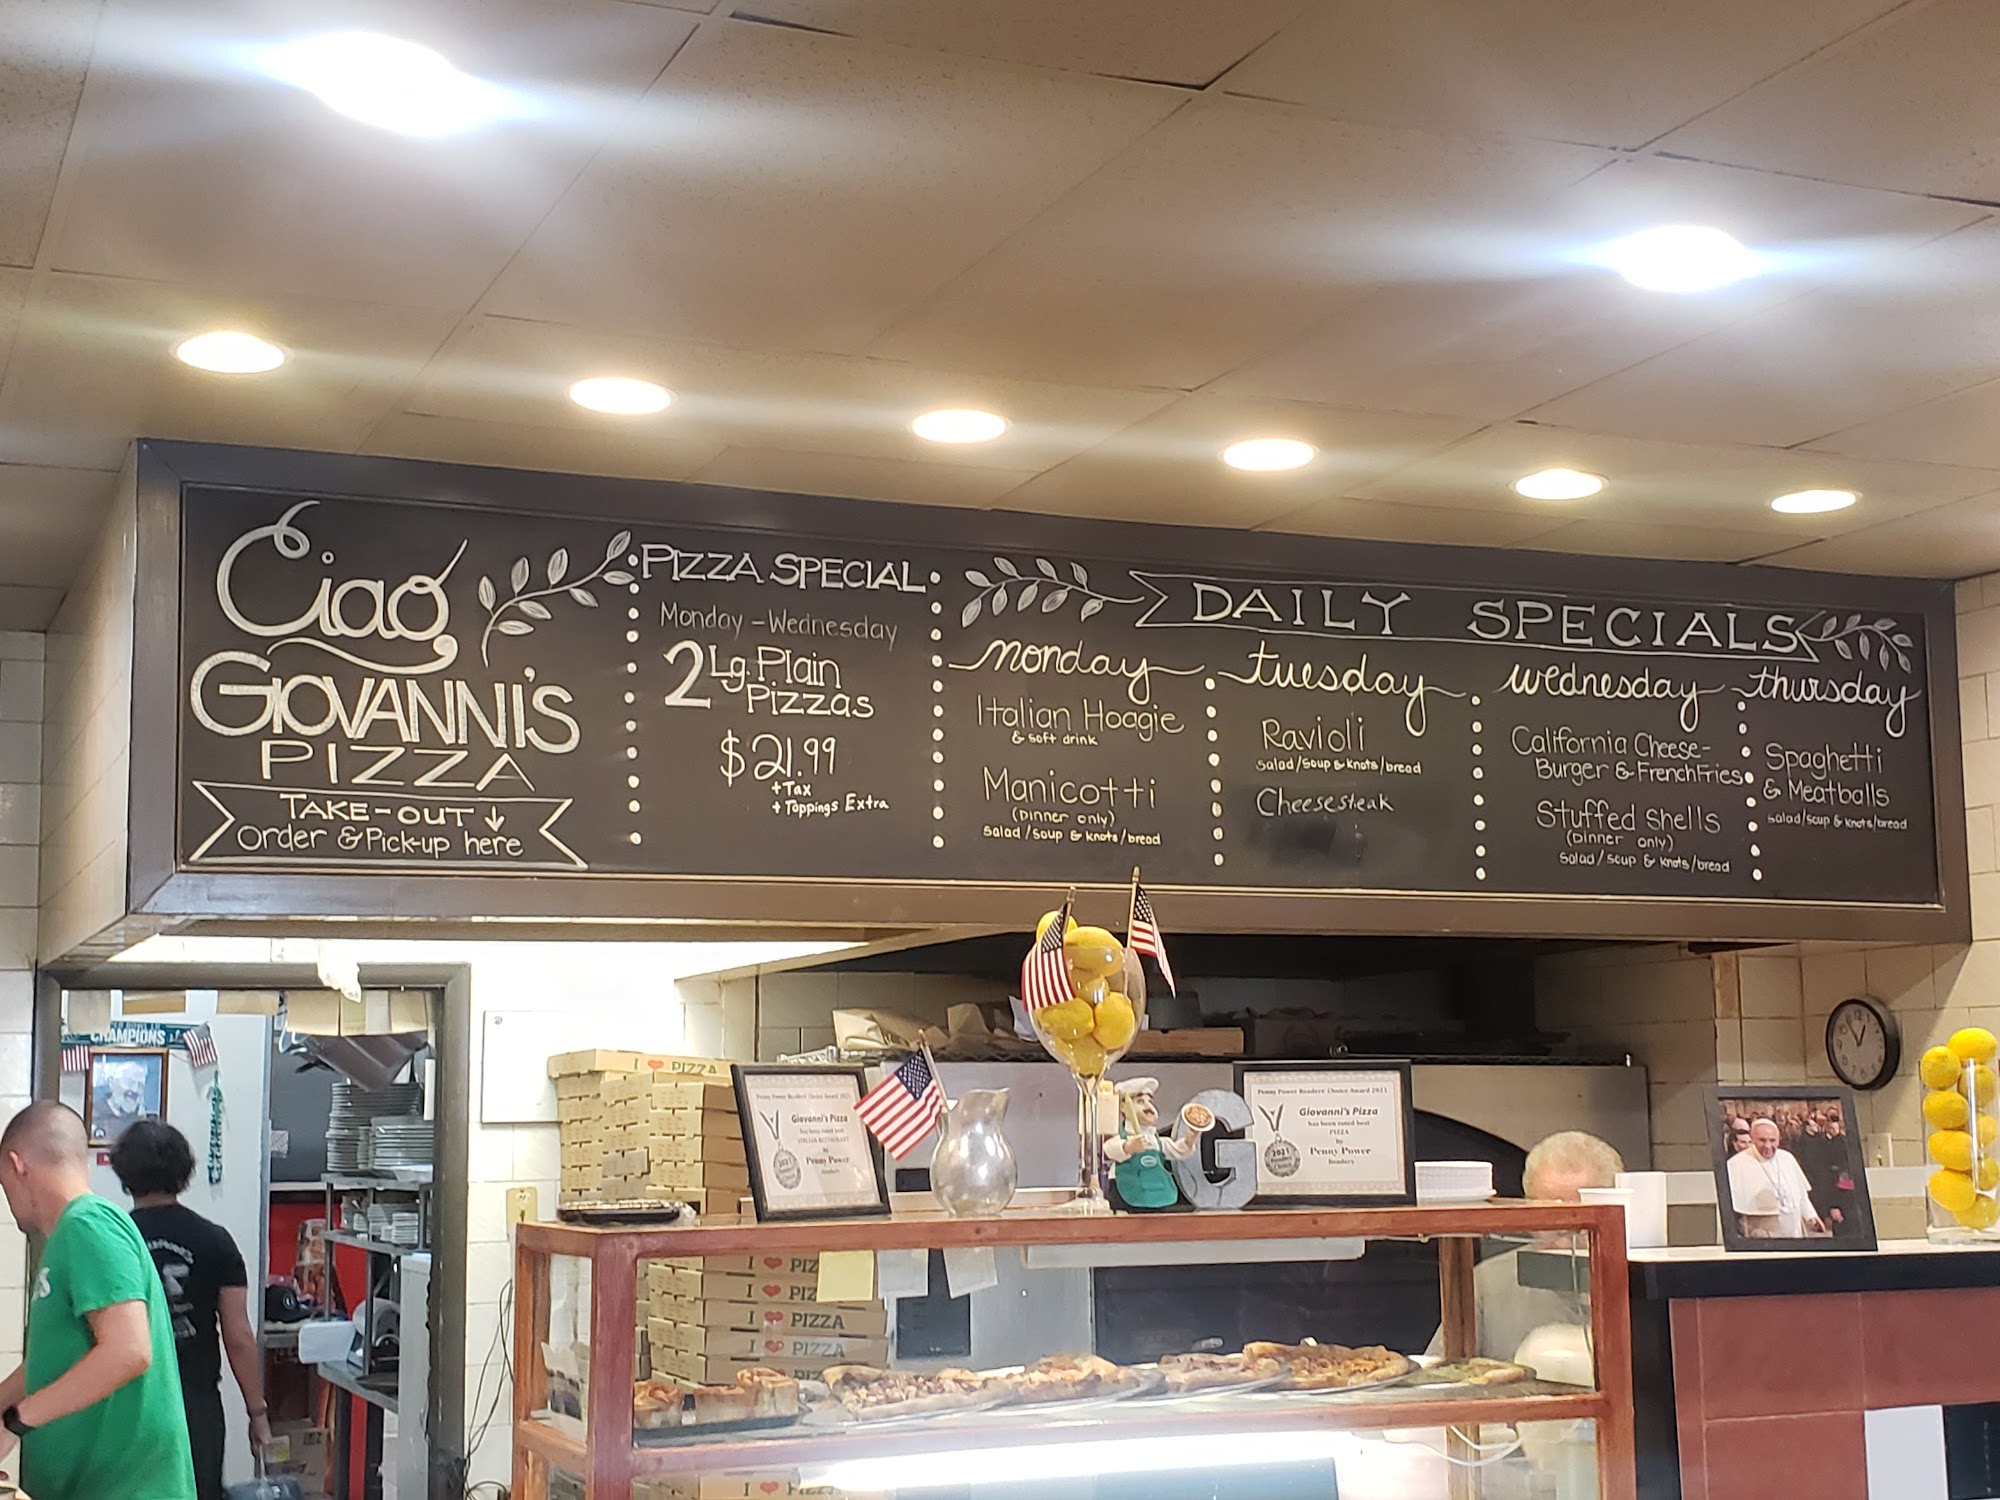 Ciao,
GIOVANNI'S
PIZZA
TAKE-OUT ↓
Order & Pick-up here
PIZZA SPECIAL
Monday - Wednesday
2 Lg. Plain
Pizzas
$21.99
+ Tax
+ Toppings Extra
DAILY SPECIALS
monday
Italian Hoagie
& soft drink
Manicotti
(Dinner only)
salad/soup & knots/bread
tuesday
Ravioli
salad/soup & knots/bread
Cheesesteak
wednesday
California Cheese-
Burger & French Fries
Stuffed Shells
(Dinner only)
salad/soup & knots/bread
thursday
Spaghetti
& Meatballs
salad/soup & knots/bread
CHAMPIONS
I ❤ PIZZA
Penny Power Readers' Choice Award 2021
Giovanni's Pizza
has been voted best
ITALIAN RESTAURANT
by
Penny Power
Readers
2021
G
Penny Power Readers' Choice Award 2021
Giovanni's Pizza
has been voted best
PIZZA
by
Penny Power
Readers
2021
I ❤ PIZ
I ❤ PIZ
I ❤ PIZZA
I ❤ PIZZA